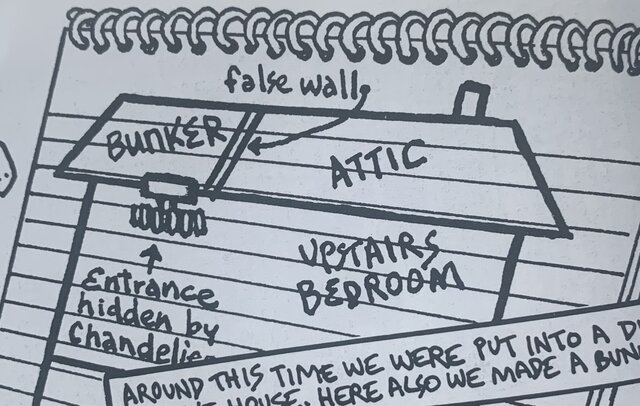 false wall
BUNKER
ATTIC
UPSTAIRS
BEDROOM
Entrance
hidden by
AROUND THIS TIME WE WERE PUT INTO A
HOUSE.. HERE ALSO WE MADE A